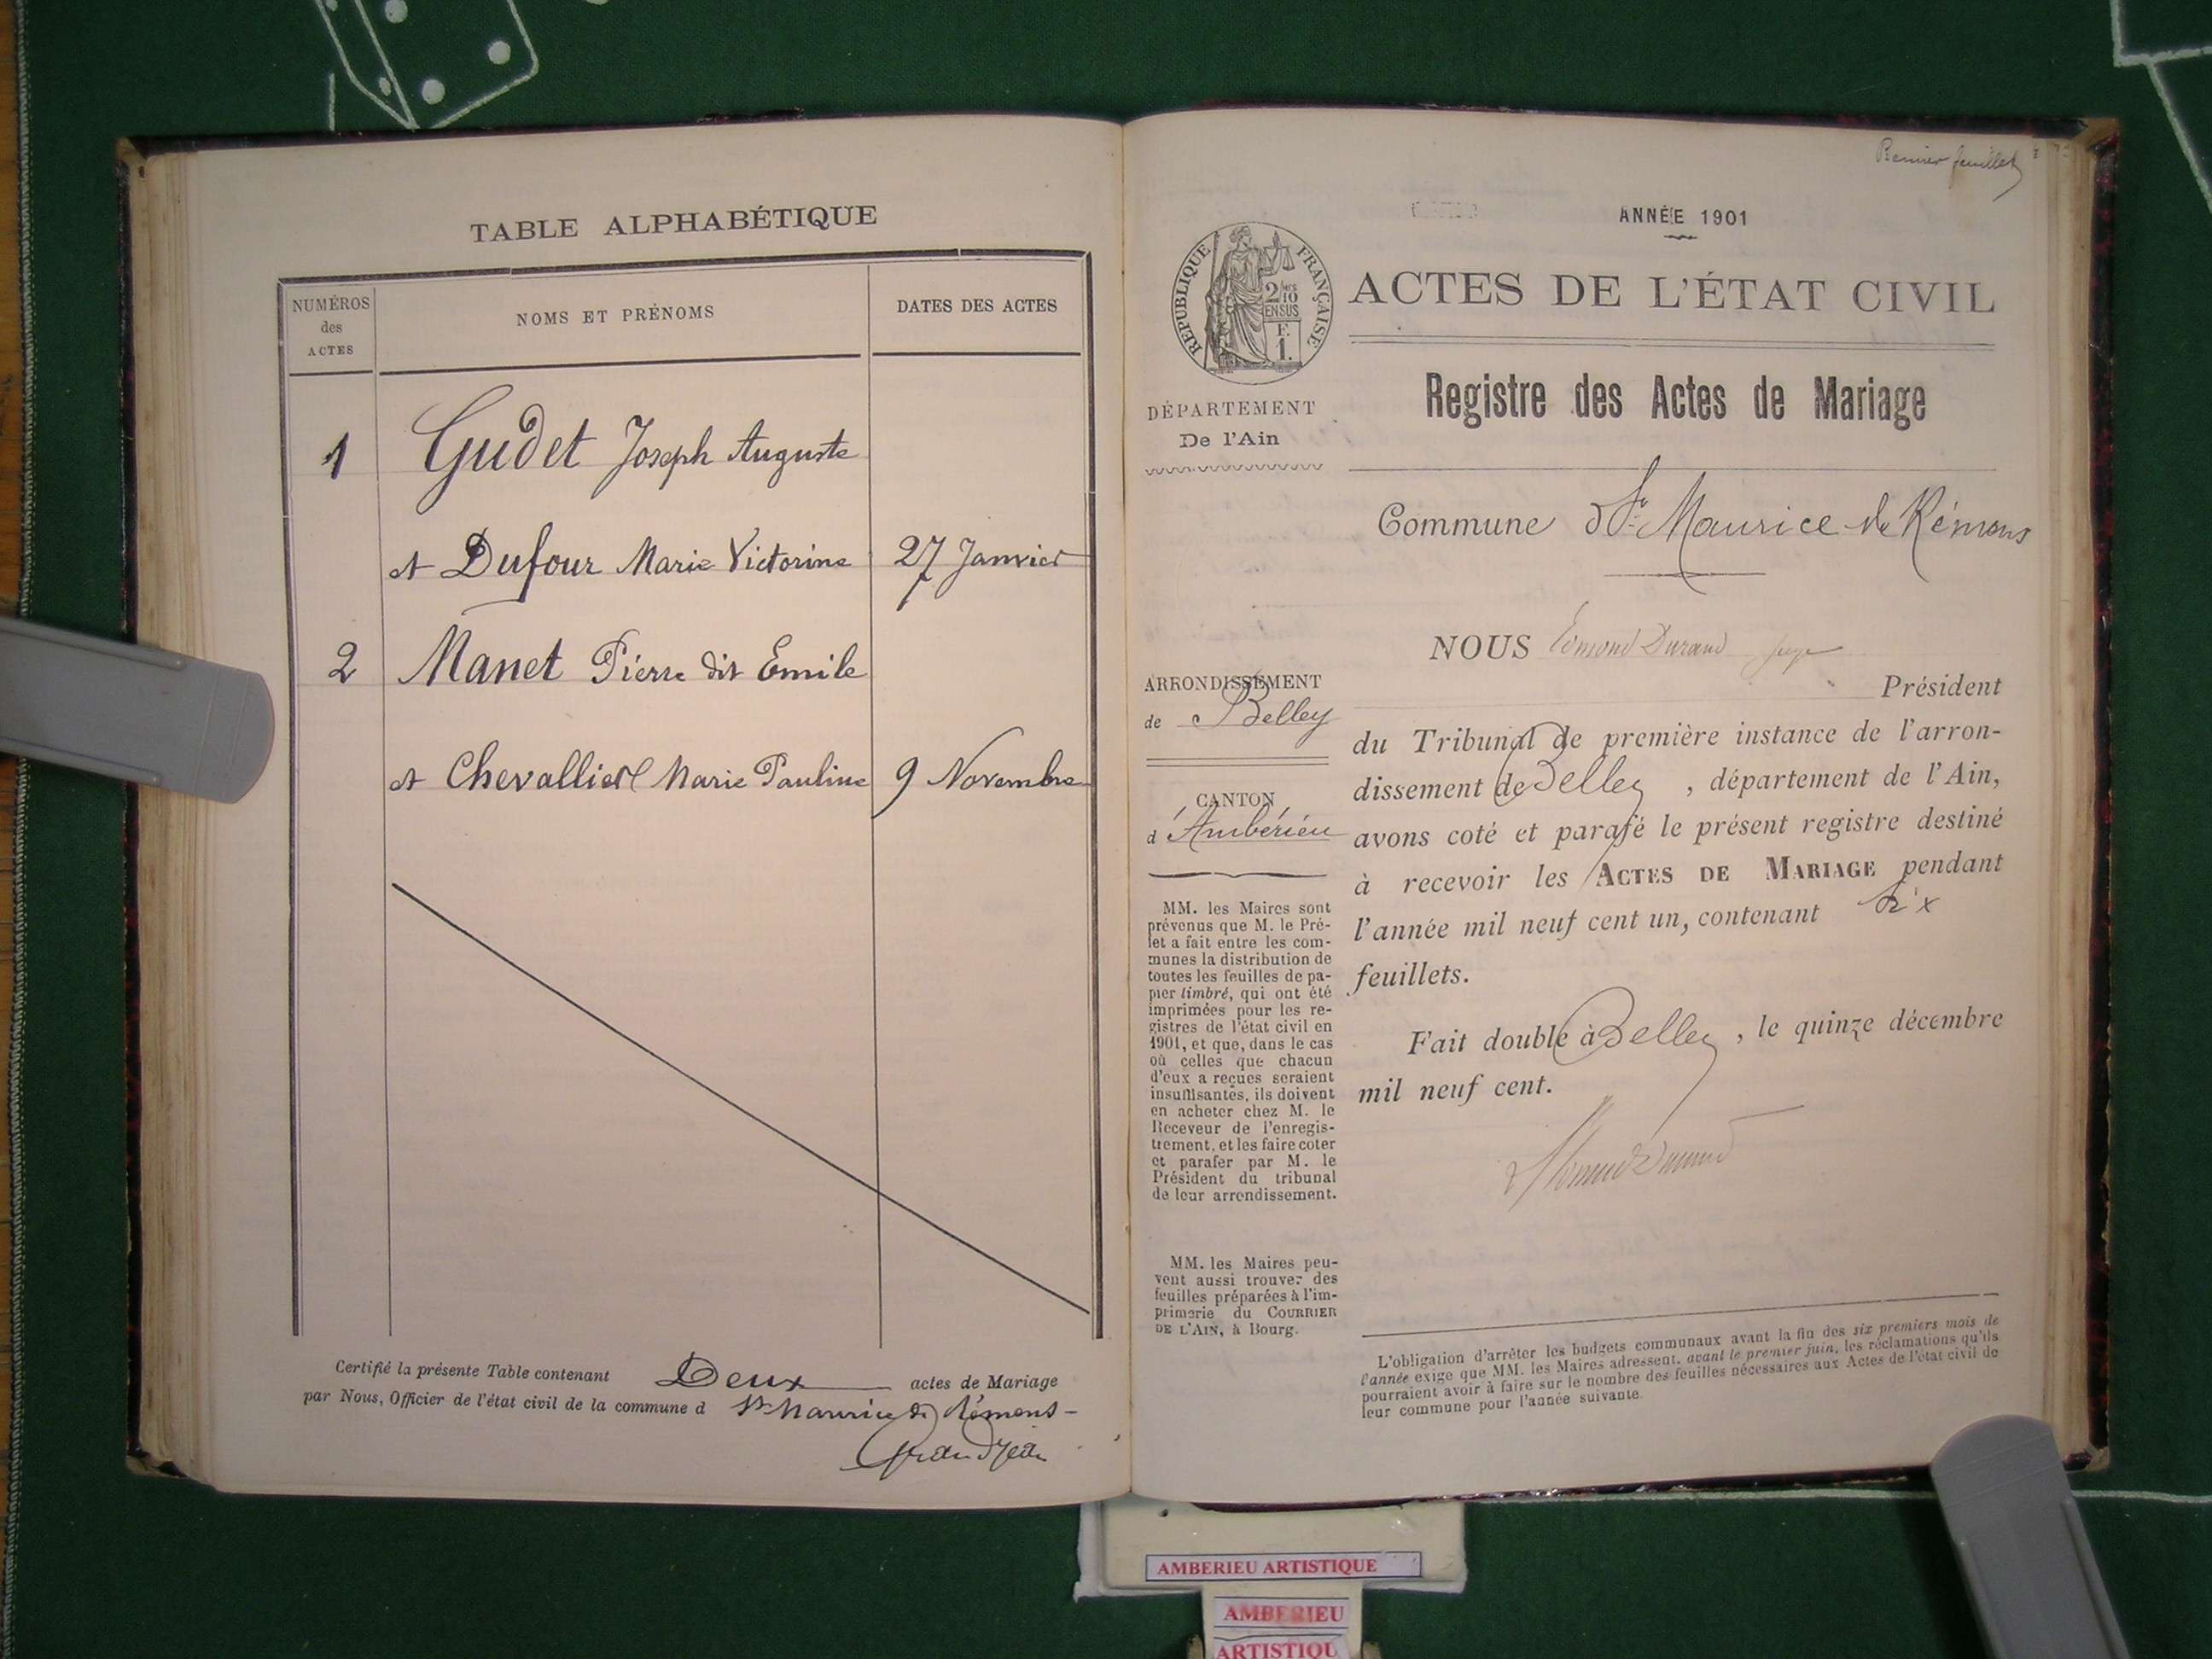 TABLE ALPHABÉTIQUE
NUMÉROS
des
ACTES
NOMS ET PRÉNOMS
DATES DES ACTES
1 Gudet Joseph Auguste
et Dufour Marie Victorine 27 Janvier
2 Manet Pierre dit Emile
et Chevallier Marie Pauline 9 Novembre
Certifié la présente Table contenant Deux actes de Mariage
par Nous, Officier de l'état civil de la commune d St Maurice de Rémens
Grandjean
feuillet
ANNÉE 1901
RÉPUBLIQUE FRANÇAISE
2/10
EN SUS
F.
1.
ACTES DE L'ÉTAT CIVIL
Registre des Actes de Mariage
DÉPARTEMENT
De l'Ain
Commune d St Maurice de Rémens
ARRONDISSEMENT
de Belley
CANTON
d'Ambérieu
MM. les Maires sont
prévenus que M. le Pré-
fet a fait entre les com-
munes la distribution de
toutes les feuilles de pa-
pier timbré, qui ont été
imprimées pour les re-
gistres de l'état civil en
1901, et que, dans le cas
où celles que chacun
d'eux a reçues seraient
insuffisantes, ils doivent
en acheter chez M. le
Receveur de l'enregis-
trement, et les faire coter
et parafer par M. le
Président du tribunal
de leur arrondissement.
MM. les Maires peu-
vent aussi trouver des
feuilles préparées à l'im-
primerie du COURRIER
DE L'AIN, à Bourg.
NOUS Edmond Durand juge
Président
du Tribunal de première instance de l'arron-
dissement de Belley, département de l'Ain,
avons coté et parafé le présent registre destiné
à recevoir les ACTES DE MARIAGE pendant
l'année mil neuf cent un, contenant
feuillets.
Fait double à Belley, le quinze décembre
mil neuf cent.
Edmond Durand
L'obligation d'arrêter les budgets communaux avant la fin des six premiers mois de
l'année exige que MM. les Maires adressent, avant le premier juin, les réclamations qu'ils
pourraient avoir à faire sur le nombre des feuilles nécessaires aux Actes de l'état civil de
leur commune pour l'année suivante.
AMBERIEU ARTISTIQUE
AMBERIEU
ARTISTIQU